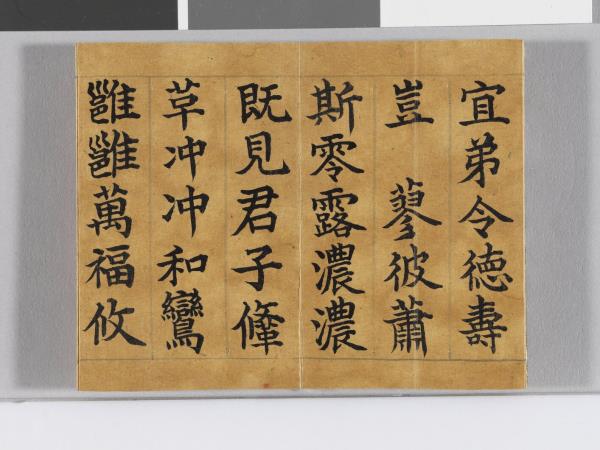 宜弟令德壽
豈 蓼彼蕭
斯零露濃濃
既見君子鞗
革冲冲和鸞
雝雝萬福攸